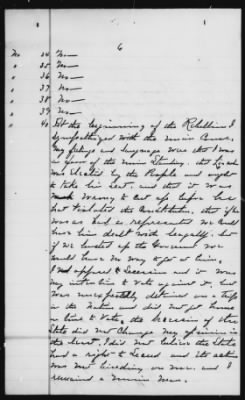 6
No 34 No—
" 35 No—
" 36 No—
" 37 No—
" 38 No—
" 39 No—
" 40 At the beginning of the Rebellion I
sympathized with the Union Cause,
My feelings and language were that I was
in favor of the Union Standing, that Lincoln
was Elected by the People and ought
to take his seat, and that it was
wrong to cut up before he
had violated the Constitution, that after
was as had a depredator we could
have him dealt with legally, but
if we busted up the Government we
would have no way to get at him,
I opposed to Secession and it was
my intention to vote against it, but
was unexpectedly detained on a trip
and did not get home
in time to Vote, the Secession of the
State did not Change my opinion in
the least. I did not believe the State
had a right to Secede and its action
was not binding on me, and I
remained a Union Man.